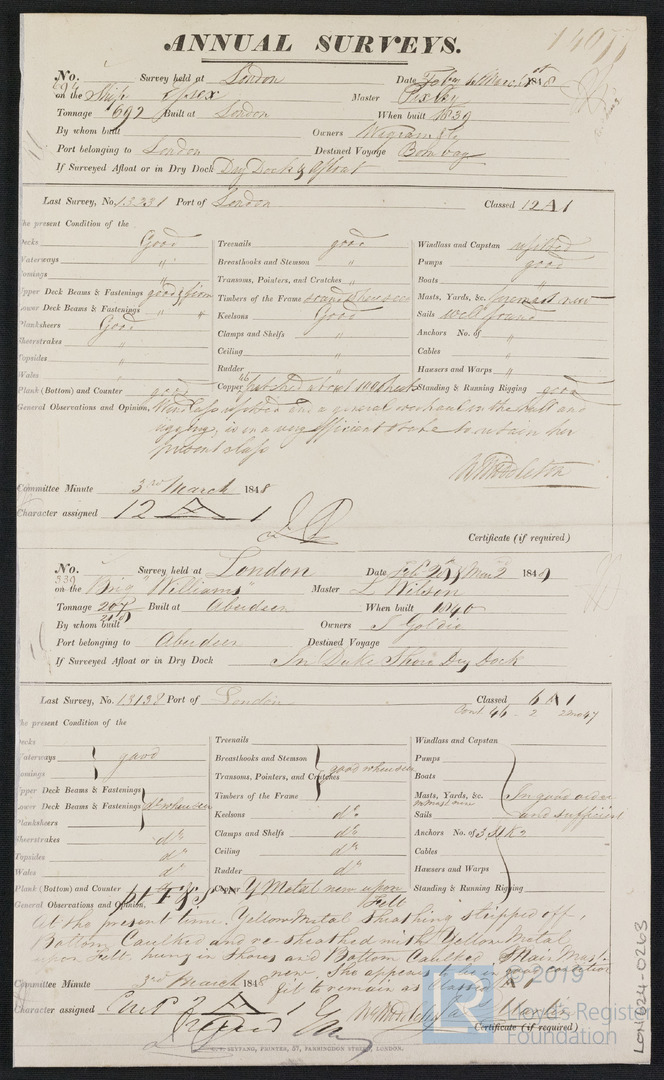 14077
ANNUAL SURVEYS.
No. 694 Survey held at London Date 1848
on the Ship Essex Master Pixley
Tonnage 692 Built at London When built 1839
By whom built Owners Wigram
Port belonging to London Destined Voyage Bombay
If Surveyed Afloat or in Dry Dock Dry Dock & afloat
Last Survey, No. 13,231 Port of London Classed 12 A 1
The present Condition of the
Decks Good
Waterways "
Comings "
Upper Deck Beams & Fastenings good & firm
Lower Deck Beams & Fastenings " "
Planksheers Good
Sheerstrakes "
Topsides "
Wales "
Plank (Bottom) and Counter good
Treenails good
Breasthooks and Stemson "
Transoms, Pointers, and Crutches "
Timbers of the Frame sound when seen
Keelsons Good
Clamps and Shelfs "
Ceiling "
Rudder "
Copper 46 patched about 100 sheets
Windlass and Capstan
Pumps good
Boats "
Masts, Yards, &c. foremast new
Sails well found
Anchors No. of "
Cables "
Hawsers and Warps "
Standing & Running Rigging good
General Observations and Opinion, Windlass and a general overhaul in the hull and
rigging, is in a very efficient state to retain her
present class
Committee Minute 3rd March 1848
Character assigned 12 A 1
Certificate (if required)
No. 339 Survey held at London Date Feb 28 & Mar 2 1848
on the Brig "Williams Master L Wilson
Tonnage 207 Built at Aberdeen When built 1840
By whom built Owners J Goldie
Port belonging to Aberdeen Destined Voyage
If Surveyed Afloat or in Dry Dock In Duke Shore Dry Dock
Last Survey, No. 13138 Port of London Classed 6 A 1
Cont 46 - 2 2mo47
The present Condition of the
Decks
Waterways good
Comings
Upper Deck Beams & Fastenings
Lower Deck Beams & Fastenings do when seen
Planksheers
Sheerstrakes do
Topsides do
Wales do
Plank (Bottom) and Counter
Treenails
Breasthooks and Stemson
Transoms, Pointers, and Crutches good when seen
Timbers of the Frame
Keelsons do
Clamps and Shelfs do
Ceiling do
Rudder do
Copper Y Metal new upon
Felt
Windlass and Capstan
Pumps
Boats
Masts, Yards, &c. In good order
Sails and sufficient
Anchors No. of 3 S1 K2
Cables
Hawsers and Warps
Standing & Running Rigging
General Observations and Opinion,
At the present time, Yellow Metal Sheathing stripped off,
Bottom Caulked and re sheathed with Yellow Metal
upon Felt. hung in Shores and Bottom Caulked. Main Mast
new. She appears to be in good condition
fit to remain as Classed A 1
Committee Minute 3rd March 1848
Character assigned Cont 2 A 1
Certificate (if required)
PRINTER, 57, FARRINGDON STREET, LONDON.
LON 624-0263
© 2019
LR
Lloyd's Register
Foundation